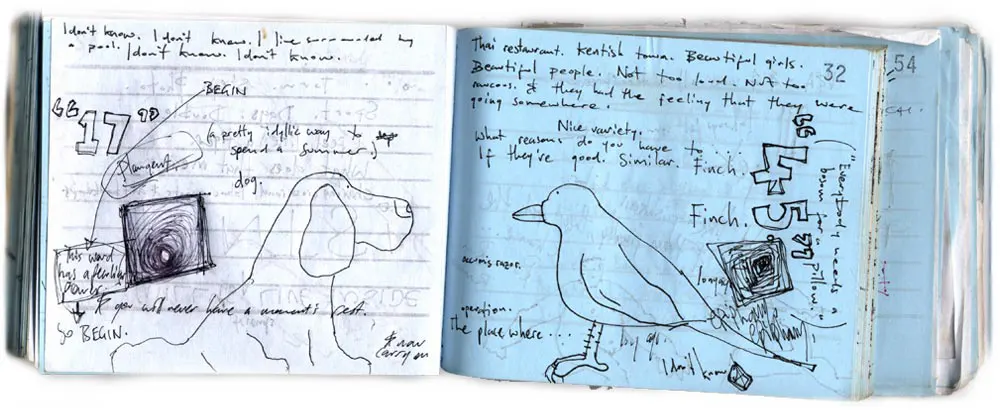 I don't know. I don't know. I live surrounded by
a pool. I don't know. I don't know.
BEGIN
"17"
(a pretty idyllic way to
spend a summer.)
Plangent
dog.
This word
has a peculiar
power.
& you will never have a moment's rest.
So BEGIN.
& now
carry on
Thai restaurant. Kentish town. Beautiful girls.
Beautiful people. Not too loud. Not too
raucous. & they had the feeling that they were
going somewhere.
32
54
Nice variety.
What reasons do you have to ....
If they're good. Similar. Finch.
"45"
("Everybody needs a
bosom for a pillow")
Finch.
occam's razor.
longing
operation.
The place where ....
long ago
I don't know